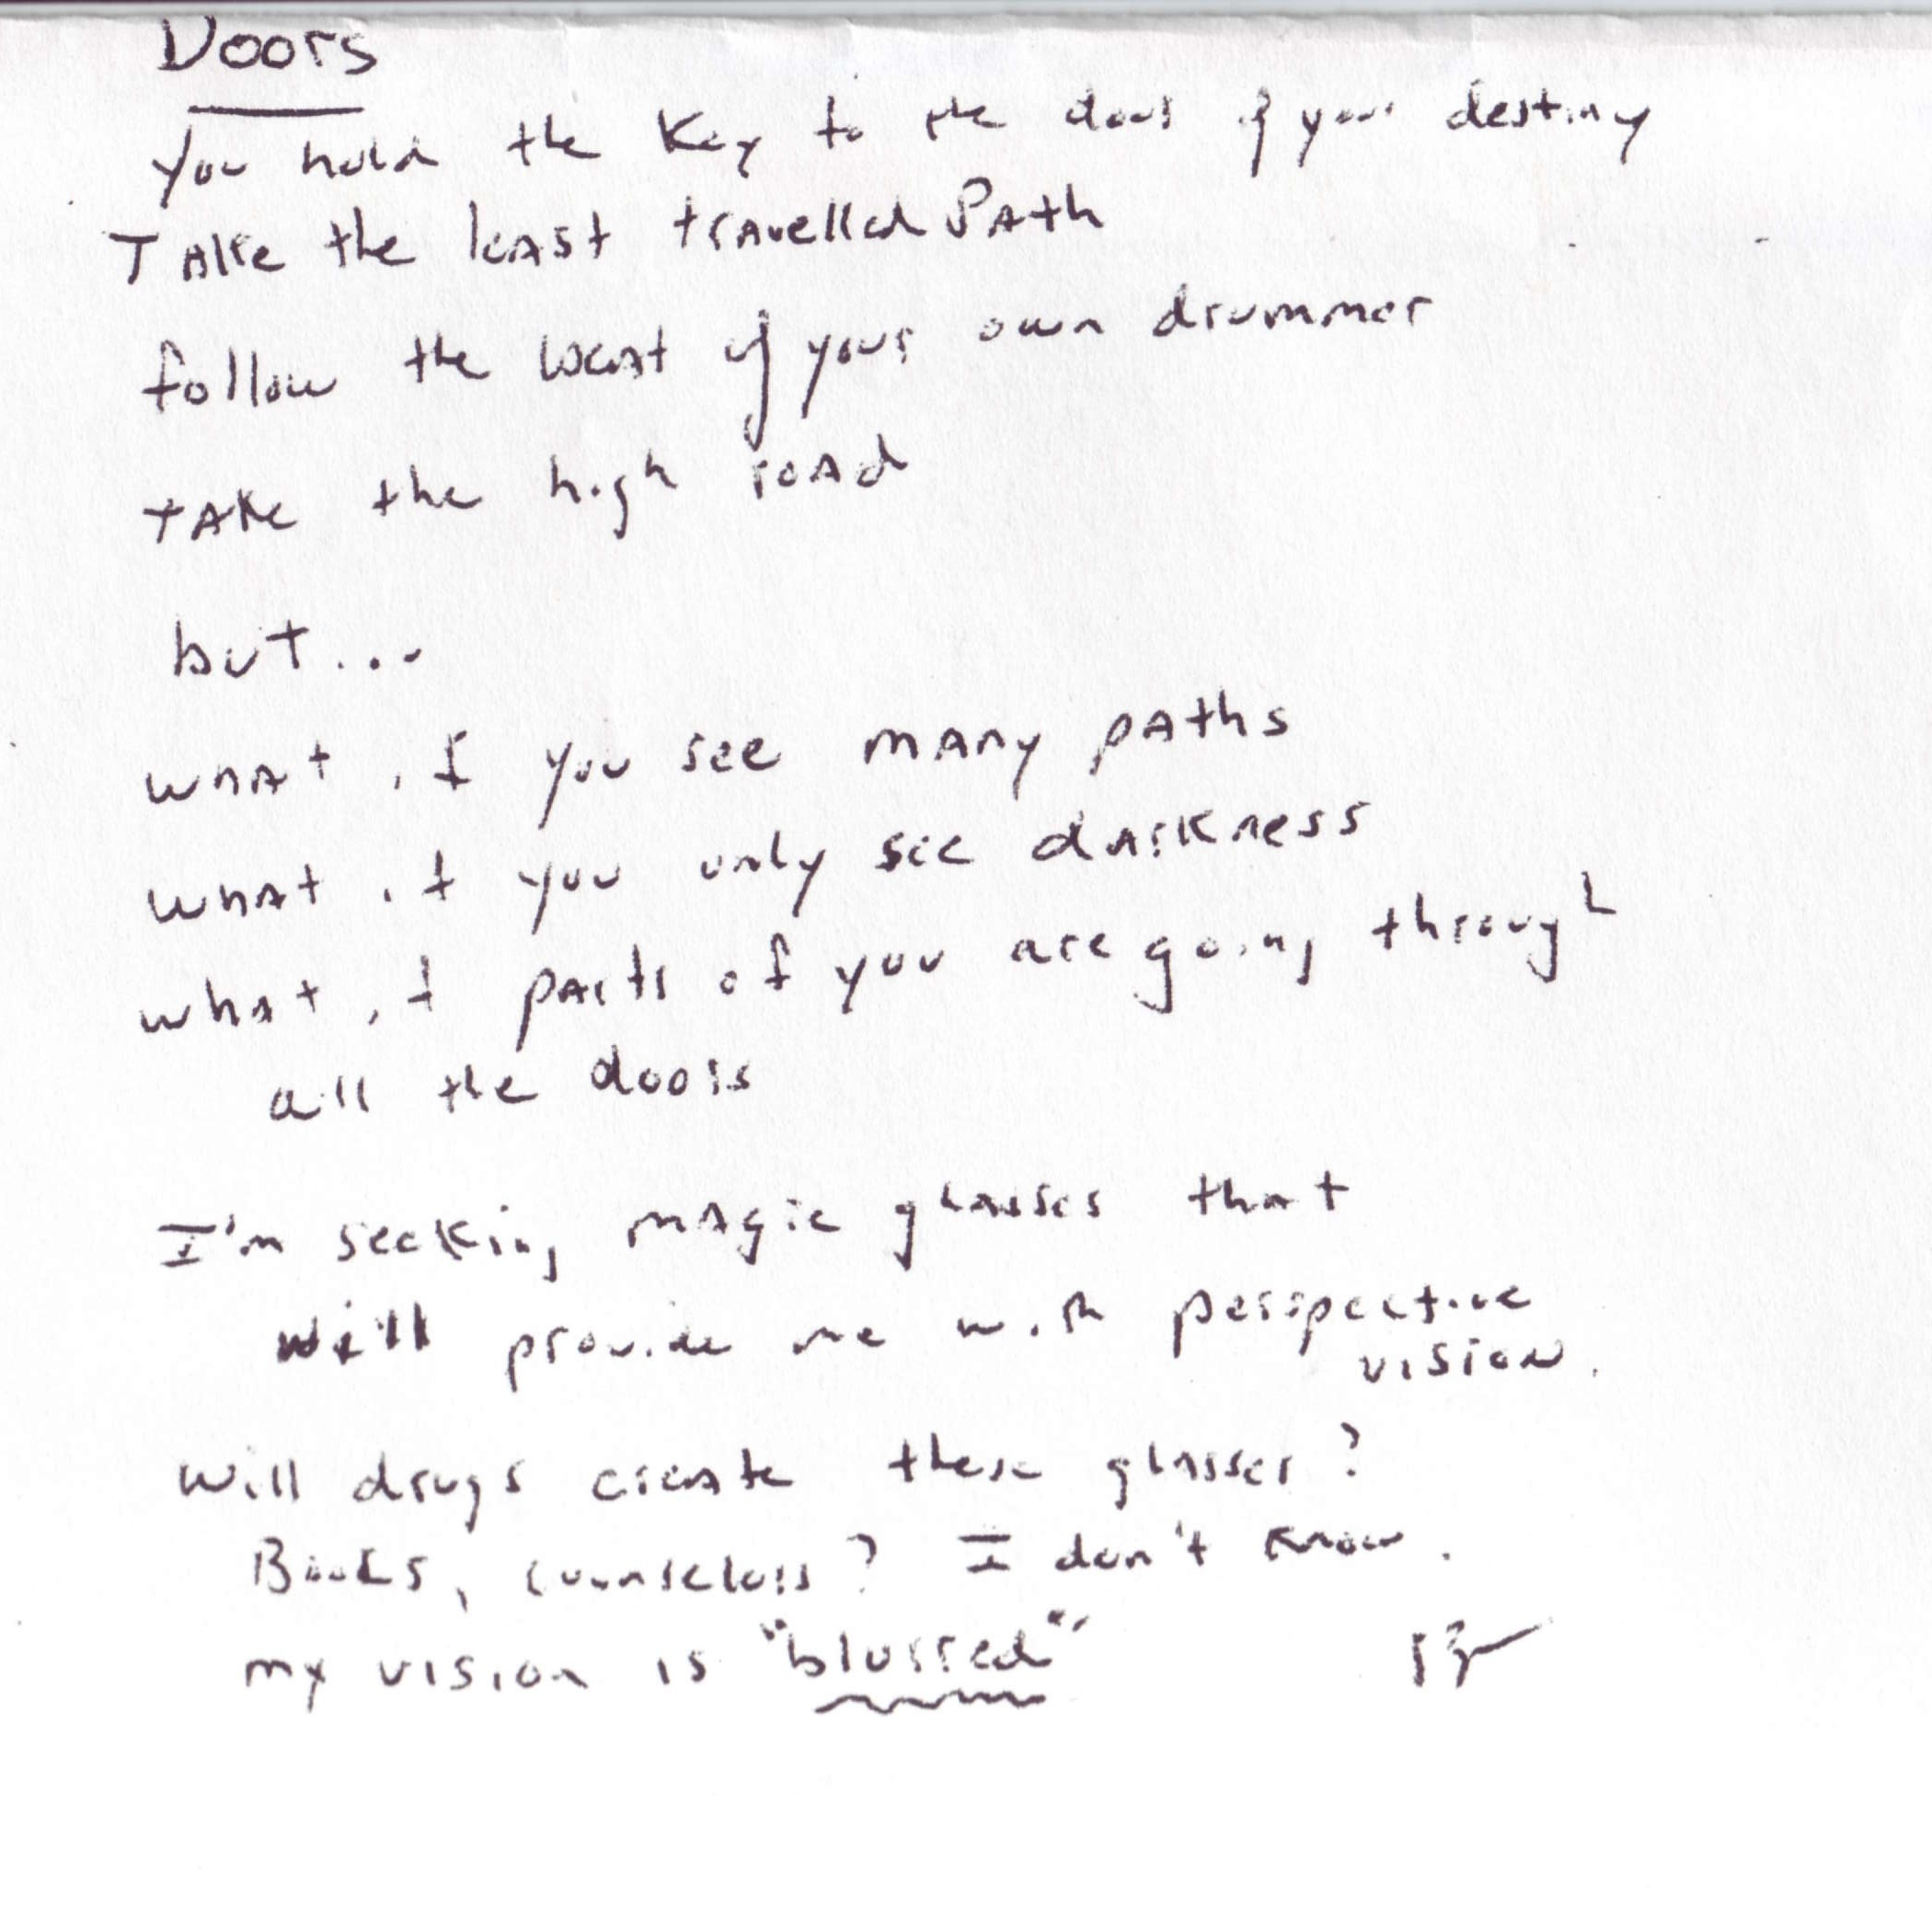 Doors
You hold the Key to the door of your destiny
Take the least travelled Path
follow the beat of your own drummer
take the high road
but...
what if you see many paths
what if you only see darkness
what if parts of you are going through
all the doors
I'm seeking magic glasses that
will provide me with perspective
vision.
Will drugs create these glasses?
Books, counselors? I don't know.
my vision is "blurred"